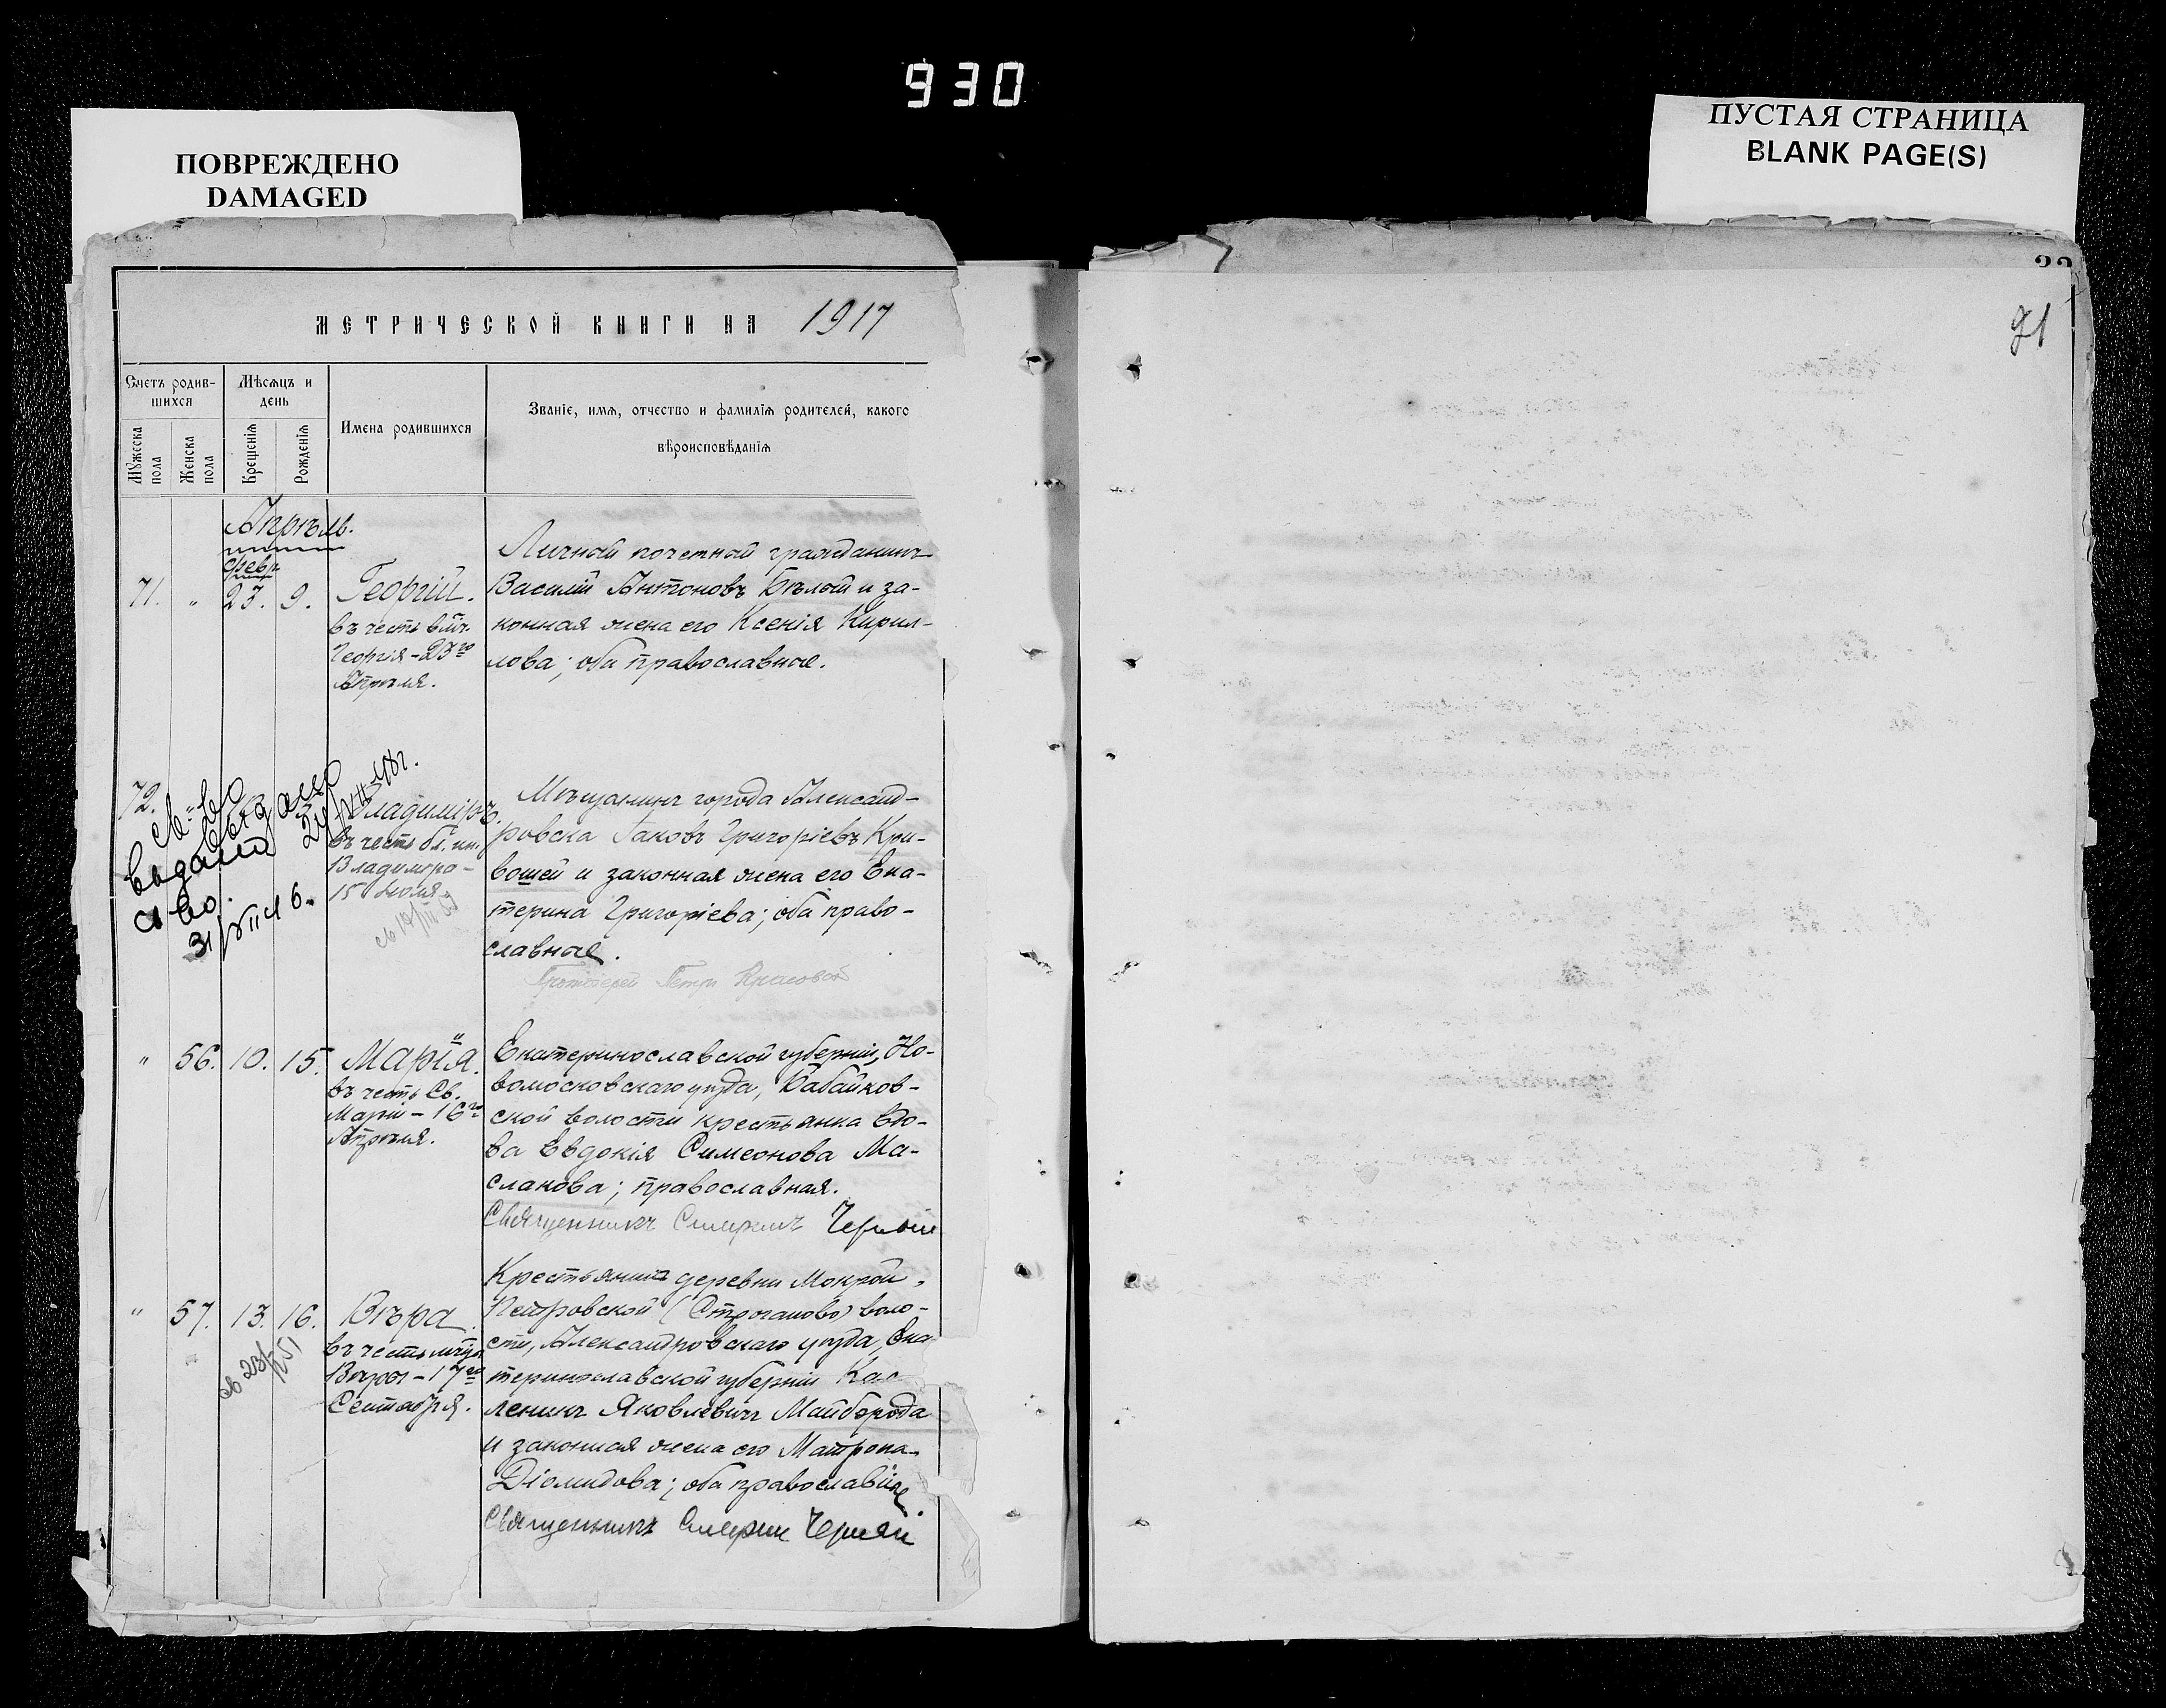 930
ПОВРЕЖДЕНО
DAMAGED
ПУСТАЯ СТРАНИЦА
BLANK PAGE(S)
МЕТРИЧЕСКОЙ КНИГИ НА 1917
Счетъ родив-
шихся
Мѣсяцъ и
день
Мужеска
пола
Женска
пола
Крещенія
Рожденія
Имена родившихся
Званіе, имя, отчество и фамилія родителей, какого
вѣроисповѣданія
Апрѣль.
февр
71. „ 23. 9. Георгій.
въ честь влмч.
Георгія – 23го
Апрѣля.
Личный почетный гражданинъ
Василій Антоновъ Бѣлый и за-
конная жена его Ксенія Кирил-
лова; оба православные.
72.
Владиміръ.
въ честь бл. кн.
Владиміра –
15 Іюля
св-во
выдано
24/VII-48г.
выдано
св-во.
31/VII 46.
Мѣщанинъ города Александ-
ровска Іаковъ Григоріевъ Кри-
вошей и законная жена его Ека-
терина Григоріева; оба право-
славные.
Протоіерей Петръ
„ 56. 10. 15. Марія.
въ честь Св.
Маріи – 16го
Апрѣля.
Екатеринославской губерніи, Но-
вомосковскаго уѣзда, Бабайков-
ской волости крестьянка вдо-
ва Евдокія Симеонова Ма-
слакова; православная.
Священникъ Черный
„ 57. 13. 16. Вѣра.
въ честь мчц.
Вѣры – 17го
Сентября.
св 23/ 51
Крестьянинъ деревни Мокрой,
Петровской (Строганово) воло-
сти, Александровскаго уѣзда, Ека
теринославской губерніи
Яковлевичъ Майборода
и законная жена его Матрона
Діомидова; оба православные
Священникъ Черный
91